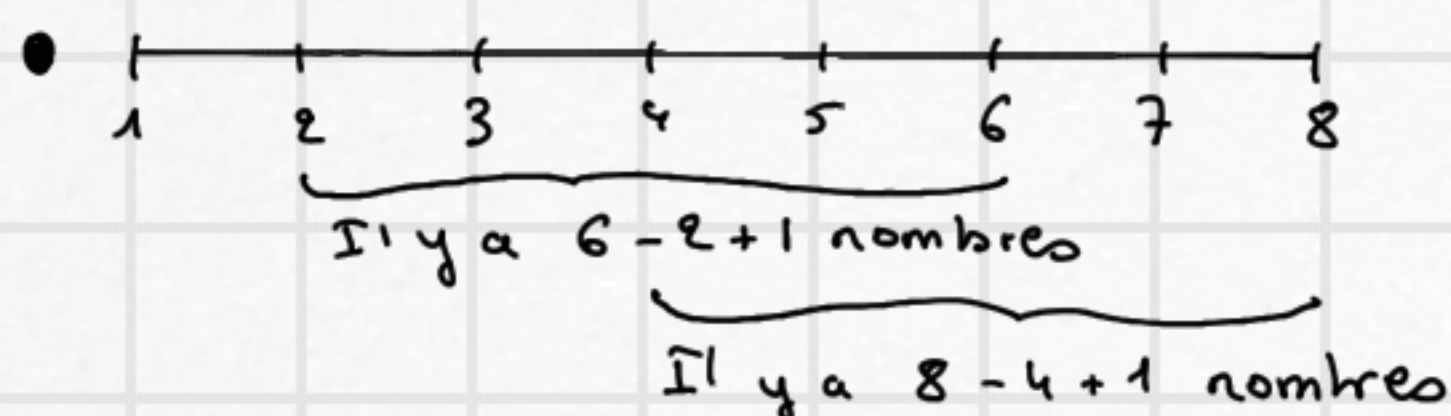 1 2 3 4 5 6 7 8
Il y a 6 - 2 + 1 nombres
Il y a 8 - 4 + 1 nombres